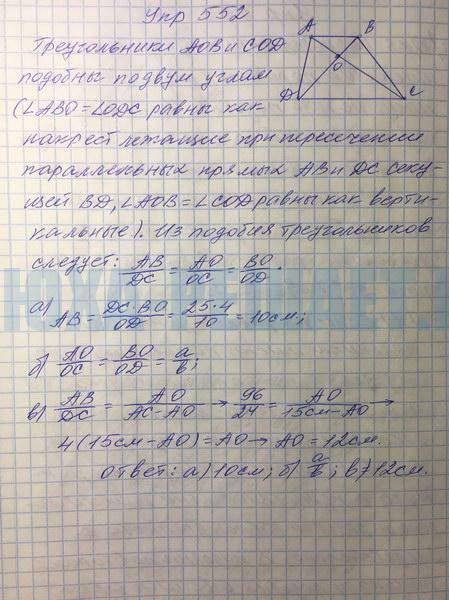 Упр 552
Треугольники AOB и COD
подобны по двум углам
(∠ABO = ∠ODC равны как
накрест лежащие при пересечении
параллельных прямых AB и DC секу-
щей BD, ∠AOB = ∠COD равны как верти-
кальные). Из подобия треугольников
следует: AB/DC = AO/OC = BO/OD.
а) AB = DC·BO/OD = 25·4/10 = 10см;
б) AO/OC = BO/OD = a/b;
в) AB/DC = AO/AC-AO → 96/24 = AO/15см-AO →
4(15см-AO) = AO → AO = 12см.
ответ: а) 10см; б) a/b; в) 12см.
A
B
O
D
C